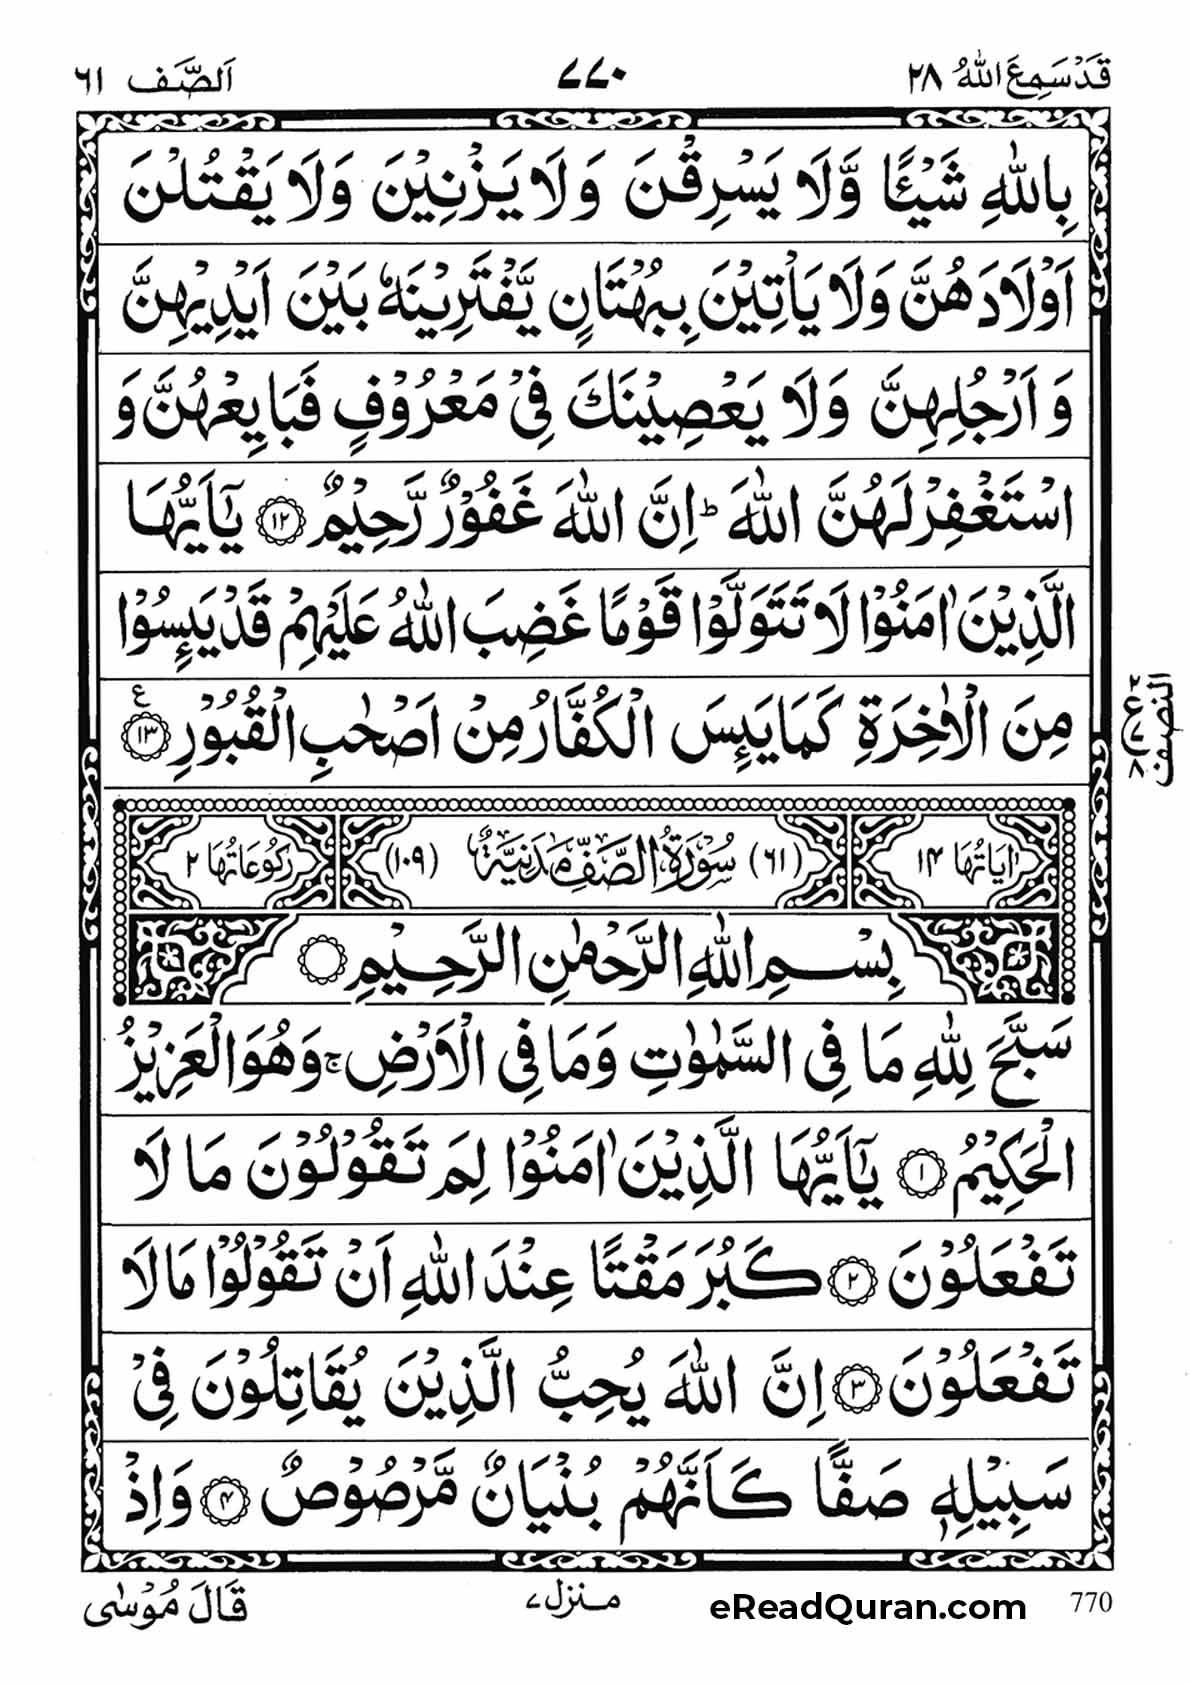 قَدْ سَمِعَ اللّٰهُ ٢٨
٧٧٠
اَلصَّفّ ٦١
بِاللّٰهِ شَيْـًٔا وَّلَا يَسْرِقْنَ وَلَا يَزْنِيْنَ وَلَا يَقْتُلْنَ
اَوْلَادَهُنَّ وَلَا يَاْتِيْنَ بِبُهْتَانٍ يَّفْتَرِيْنَهٗ بَيْنَ اَيْدِيْهِنَّ
وَ اَرْجُلِهِنَّ وَلَا يَعْصِيْنَكَ فِيْ مَعْرُوْفٍ فَبَايِعْهُنَّ وَ
اسْتَغْفِرْ لَهُنَّ اللّٰهَ ؕ اِنَّ اللّٰهَ غَفُوْرٌ رَّحِيْمٌ ۝١٢ يٰۤاَيُّهَا
الَّذِيْنَ اٰمَنُوْا لَا تَتَوَلَّوْا قَوْمًا غَضِبَ اللّٰهُ عَلَيْهِمْ قَدْ يَىِٕسُوْا
مِنَ الْاٰخِرَةِ كَمَا يَىِٕسَ الْكُفَّارُ مِنْ اَصْحٰبِ الْقُبُوْرِ ۝١٣ ع
النصف
اٰيَاتُهَا ١٤
(٦١) سُوْرَةُ الصَّفِّ مَدَنِيَّةٌ (١٠٩)
رُكُوْعَاتُهَا ٢
بِسْمِ اللّٰهِ الرَّحْمٰنِ الرَّحِيْمِ ۝
سَبَّحَ لِلّٰهِ مَا فِي السَّمٰوٰتِ وَمَا فِي الْاَرْضِ ۚ وَهُوَ الْعَزِيْزُ
الْحَكِيْمُ ۝١ يٰۤاَيُّهَا الَّذِيْنَ اٰمَنُوْا لِمَ تَقُوْلُوْنَ مَا لَا
تَفْعَلُوْنَ ۝٢ كَبُرَ مَقْتًا عِنْدَ اللّٰهِ اَنْ تَقُوْلُوْا مَا لَا
تَفْعَلُوْنَ ۝٣ اِنَّ اللّٰهَ يُحِبُّ الَّذِيْنَ يُقَاتِلُوْنَ فِيْ
سَبِيْلِهٖ صَفًّا كَاَنَّهُمْ بُنْيَانٌ مَّرْصُوْصٌ ۝٤ وَاِذْ
قَالَ مُوْسٰى
منزل ٧
eReadQuran.com
770